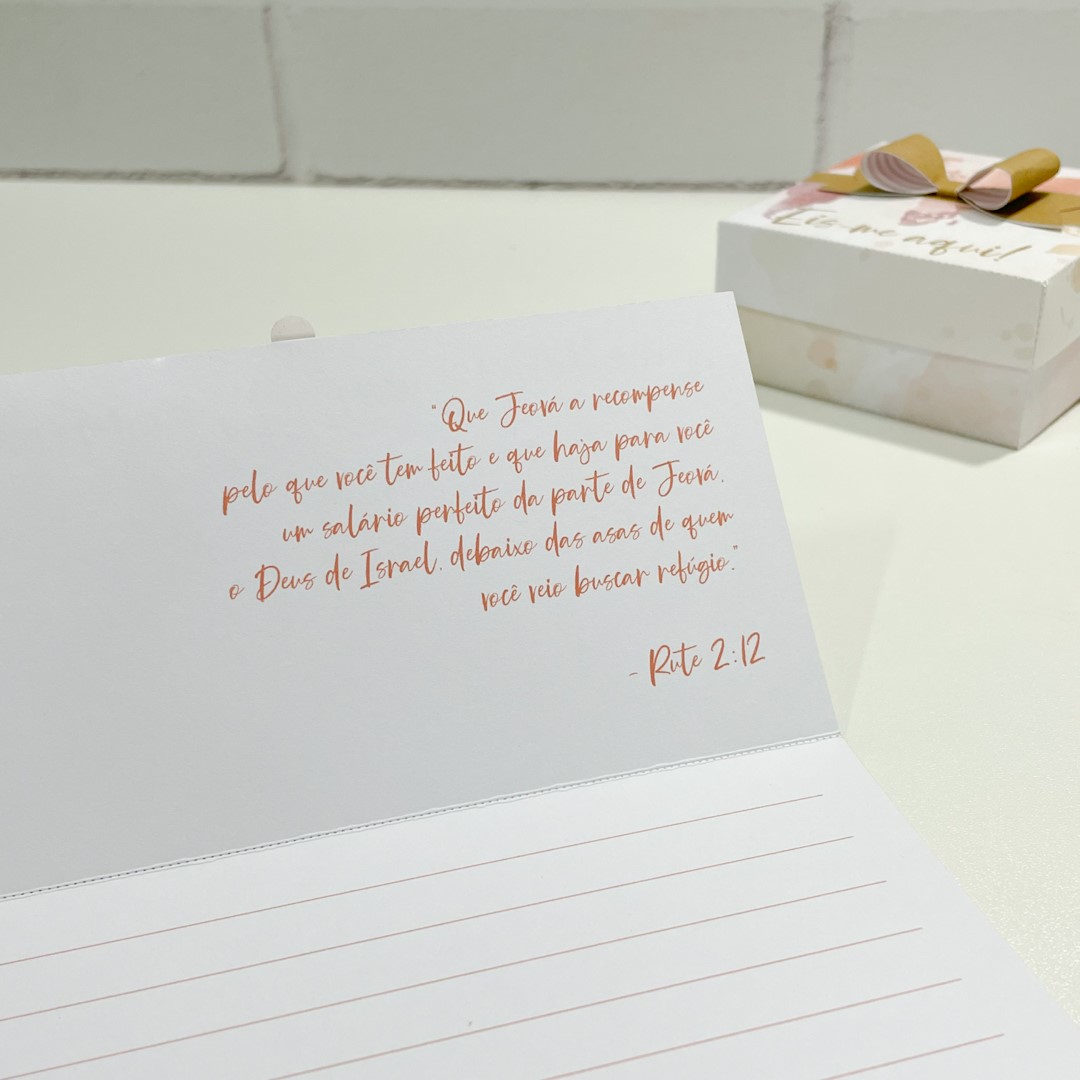 Eis-me aqui!
"Que Jeová a recompense
pelo que você tem feito e que haja para você
um salário perfeito da parte de Jeová,
o Deus de Israel, debaixo das asas de quem
você veio buscar refúgio."
- Rute 2:12